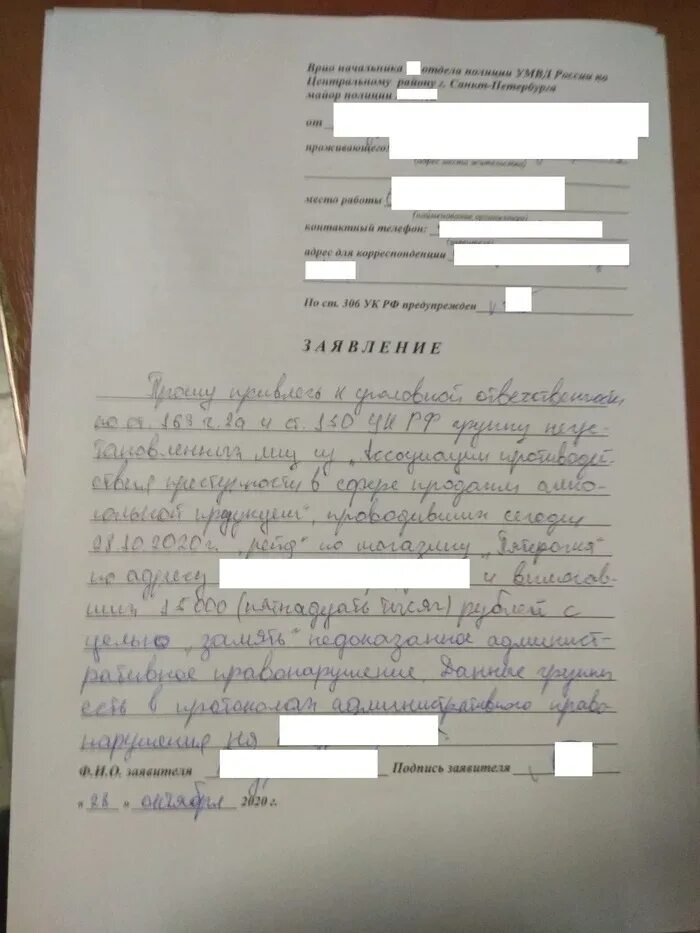 Врио начальника отдела полиции УМВД России по
Центральному району г. Санкт-Петербурга
майор полиции
от
проживающего:
(адрес места жительства)
место работы
(наименование организации)
контактный телефон:
адрес для корреспонденции
По ст. 306 УК РФ предупрежден
ЗАЯВЛЕНИЕ
Прошу привлечь к уголовной ответственности
по ст. 163 ч. 2а и ст. 150 УК РФ группу неус-
тановленных лиц из „Ассоциации противодей-
ствия преступности в сфере продажи алко-
гольной продукции", проводивших сегодня
28.10.2020г. „рейд" по магазину „Пятерочка"
по адресу и вымогав-
ших 15000 (пятнадцать тысяч) рублей с
целью „замять" недоказанное админист-
ративное правонарушение. Данные группы
есть в протоколах административного право-
нарушения на
Ф.И.О. заявителя Подпись заявителя
« 28 » октября 2020 г.